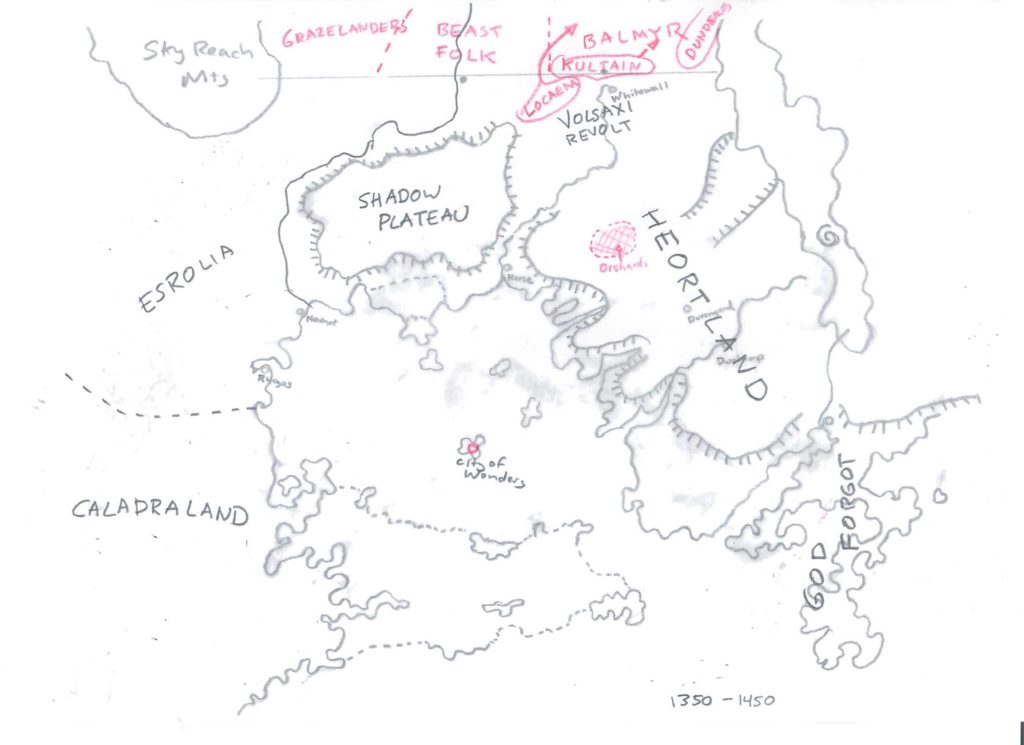 GRAZELANDERS
BEAST
FOLK
BALMYR
DUNDEALOS
Sky Reach
Mts
KULTAIN
LOCAEM
Whitewall
VOLSAXI
REVOLT
SHADOW
PLATEAU
HEORTLAND
Orchards
ESROLIA
Karse
Nochet
Durengard
City of
Wonders
CALADRALAND
GOD
FORGOT
1350 - 1450